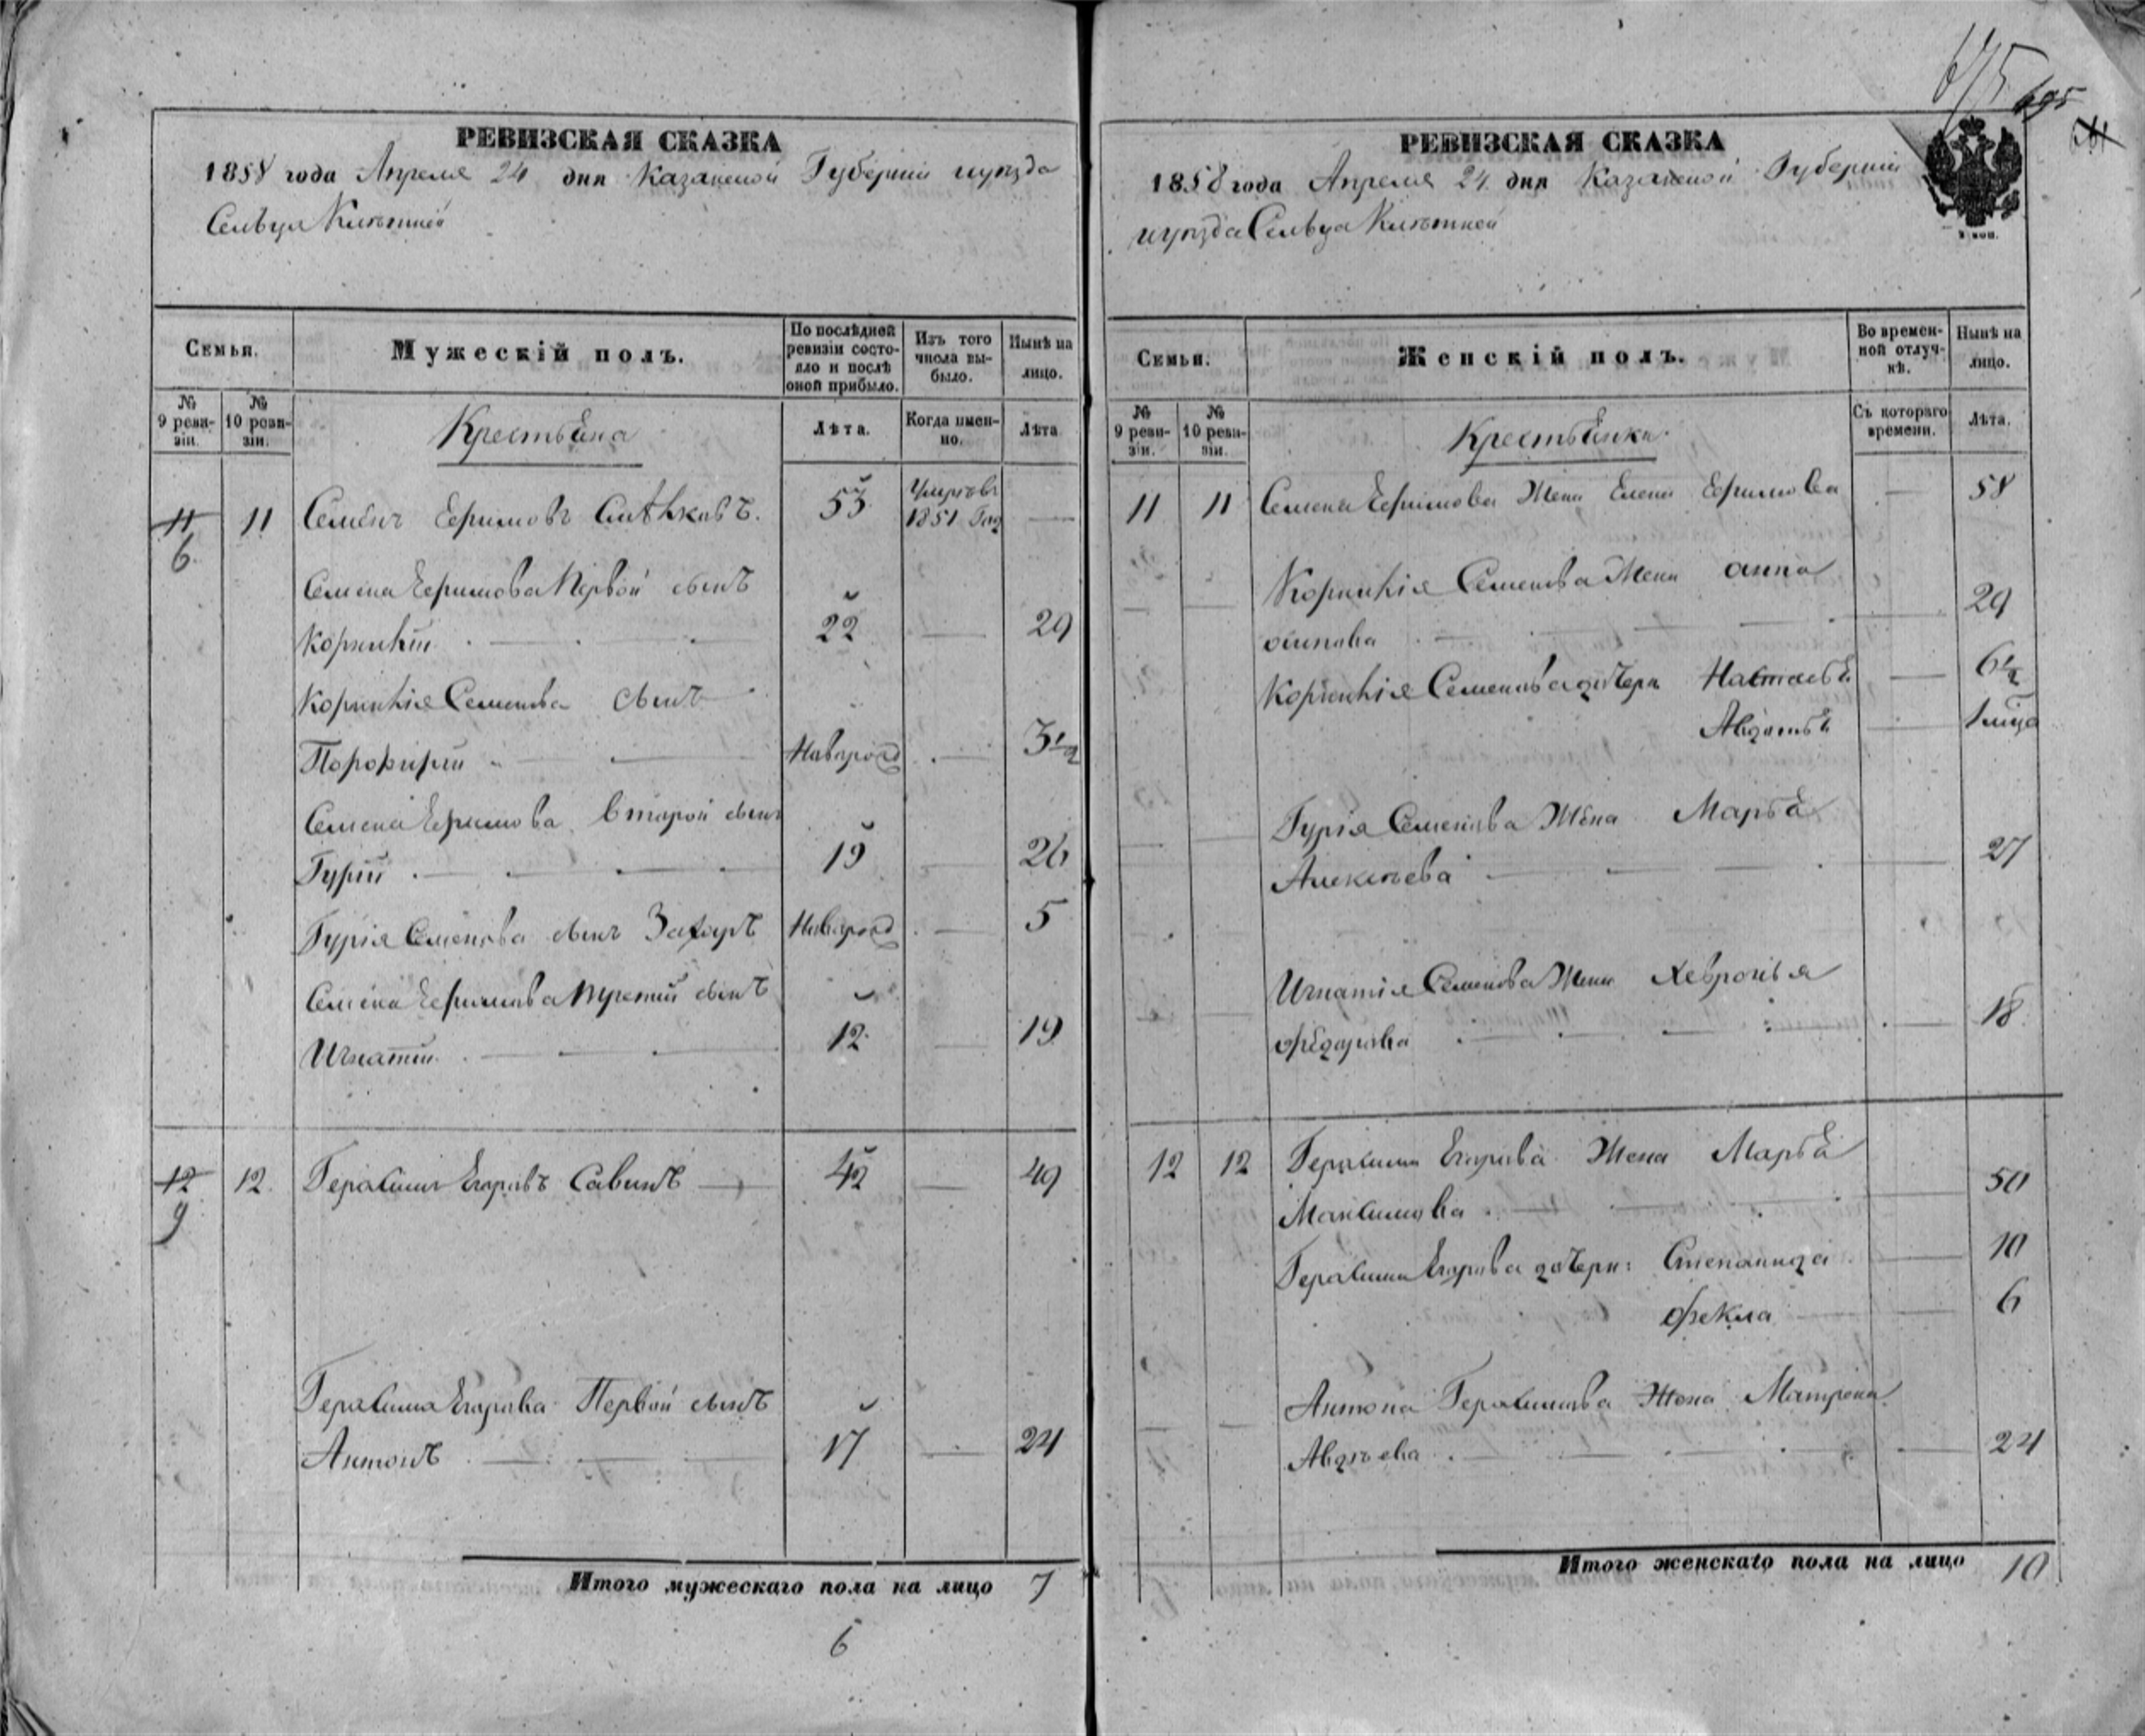 675
695
РЕВИЗСКАЯ СКАЗКА
1858 года Апреля 24 дня Казанской Губернии иуезда
Сельца
Семьи.
Мужескій полъ.
По послѣдней ревизіи состояло и послѣ оной прибыло.
Изъ того числа выбыло.
Нынѣ на лицо.
№ 9 ревизіи.
№ 10 ревизіи.
Крестьяна
Лѣта.
Когда именно.
Лѣта
11 11 Семёнъ Ефимовъ 53 Умръвъ 1851 Год
6
Семена Ефимова Первой сынъ
Корнилій 22 29
Корнилія Семенова сынъ
Порофирій Наворозд 3 1/2
Семена Ефимова второй сынъ
Гурій 19 26
Гурія Семенова сынъ Захаръ Наворозд 5
Семена Ефимова третій сынъ
Игнатій 12 19
12 12 Герасимъ Егоровъ Савинъ 42 49
9
Герасима Егорова Первой сынъ
Антонъ 17 24
Итого мужескаго пола на лицо 7
6
РЕВИЗСКАЯ СКАЗКА
1858 года Апреля 24 дня Казанской Губерніи
иуезда Сельца
Семьи.
Женскій полъ.
Во временной отлучкѣ.
Нынѣ на лицо.
№ 9 ревизіи.
№ 10 ревизіи.
Крестьянки
Съ котораго времени.
Лѣта.
11 11 Семена Ефимова Жена Елена Ефимова 58
Корнилія Семенова Жена анна
осипова 29
Корнилія Семенова дочери Настасья 6 1/2
Авдотья 1 мца
Гурія Семенова Жена Марья
Алексѣева 27
Игнатія Семенова Жена Хевронья
Федорова 18
12 12 Герасима Егорова Жена Марья
Максимова 50
Герасима Егорова дочери: Степанида 10
Фекла 6
Антона Герасимова Жена Матрена
Авдѣева 24
Итого женскаго пола на лицо 10